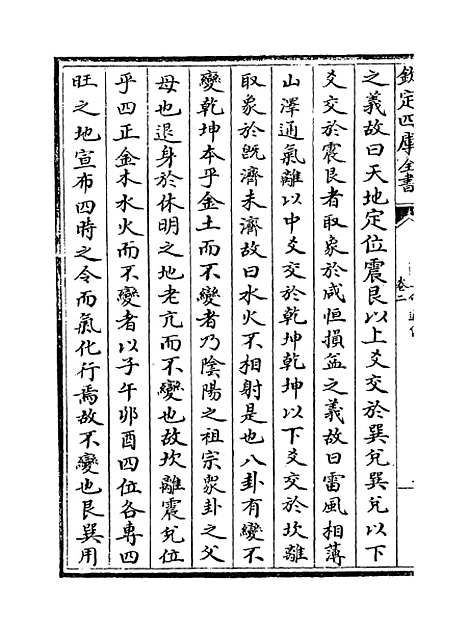 欽定四庫全書
卷二
之義故曰天地定位震艮以上爻交於巽兌巽兌以下
爻交於震艮者取象於咸恒損益之義故曰雷風相薄
山澤通氣離以中爻交於乾坤乾坤以下爻交於坎離
取象於旣濟未濟故曰水火不相射是也八卦有變不
變乾坤本乎金土而不變者乃陰陽之祖宗衆卦之父
母也退身於休明之地老亢而不變也故坎離震兌位
乎四正金木水火而不變者以子午卯酉四位各專四
旺之地宣布四時之令而氣化行焉故不變也艮巽用